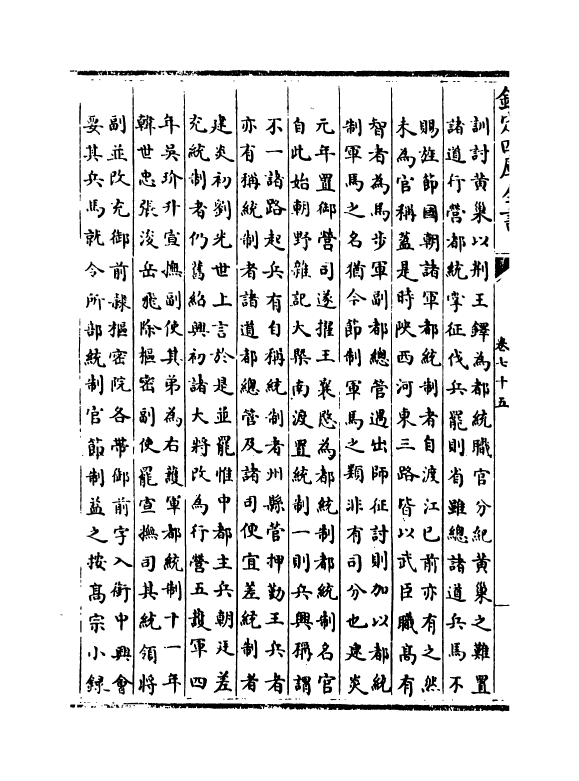 欽定四庫全書
卷七十五
訓討黄巢以荆王鐸為都統職官分紀黄巢之難置
諸道行營都統掌征伐兵罷則省雖總諸道兵馬不
賜旌節國朝諸軍都統制者自渡江已前亦有之然
未為官稱蓋是時陜西河東三路皆以武臣職髙有
智者為馬步軍副都總管遇出師征討則加以都統
制軍馬之名猶今節制軍馬之類非有司分也建炎
元年置御營司遂擢王襄愍為都統制都統制名官
自此始朝野雜記大槩南渡置統制一則兵興稱謂
不一諸路起兵有自稱統制者州縣管押勤王兵者
亦有稱統制者諸道都總管及諸司便宜差統制者
建炎初劉光世上言於是並罷惟中都主兵朝廷差
充統制者仍舊紹興初諸大將改為行營五護軍四
年吳玠升宣撫副使其弟為右護軍都統制十一年
韓世忠張浚岳飛除樞密副使罷宣撫司其統領將
副並改充御前隸樞密院各帶御前字入銜中興會
要其兵馬就令所部統制官節制益之按髙宗小録